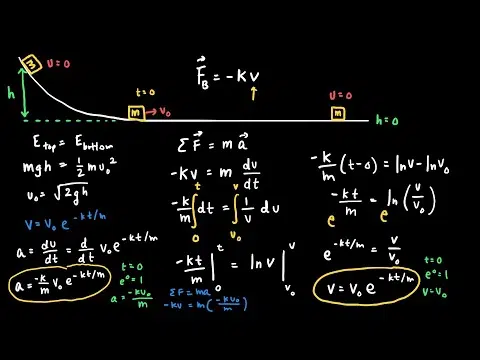 m v=0
t=0
F⃗_B = -Kv
v=0
h
m → v₀
m
h=0
E_top = E_bottom
mgh = ½mv₀²
v₀ = √2gh
v = v₀ e^-kt/m
a = dv/dt = d/dt v₀ e^-kt/m
a = -k/m v₀ e^-kt/m
t=0
e⁰=1
a = -kv₀/m
ΣF⃗ = ma⃗
-Kv = m dv/dt
-k/m ∫₀^t dt = ∫_v₀^v 1/v dv
-kt/m |₀^t = ln v |_v₀^v
ΣF = ma
-kv = m(-kv₀/m)
-k/m (t-0) = ln v - ln v₀
-kt/m = ln(v/v₀)
e e
e^-kt/m = v/v₀
v = v₀ e^-kt/m
t=0
e⁰=1
v=v₀